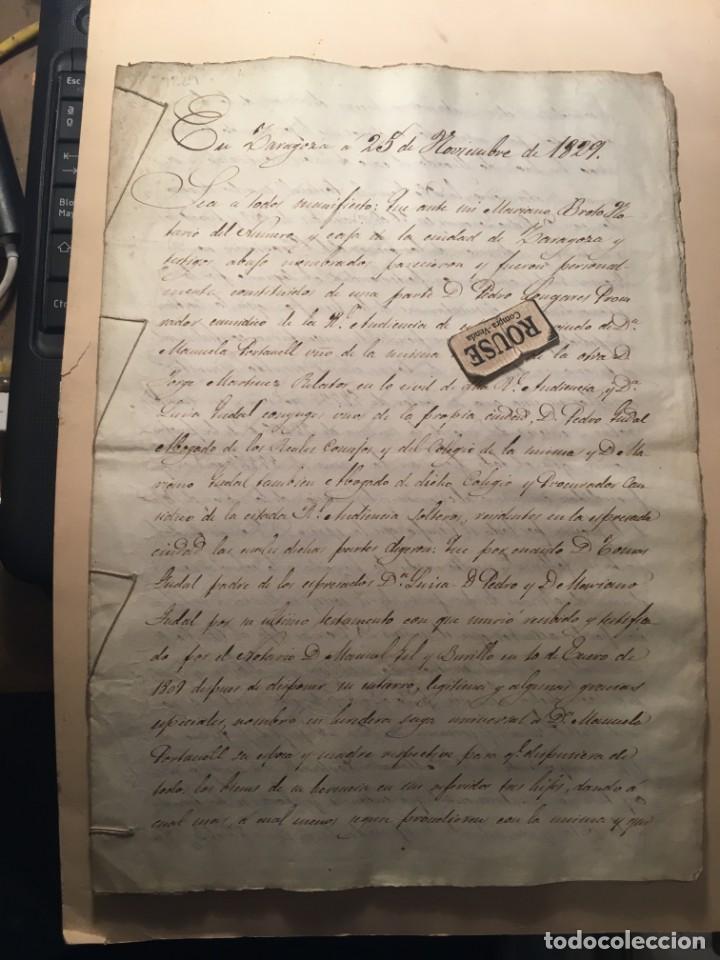 En Zaragoza á 25 de Noviembre de 1829.
Sea a todos manifiesto: Que ante mi Mariano Broto No-
tario del Numero y caja de la ciudad de Zaragoza y
testigos abajo nombrados parecieron y fueron personal-
mente constituidos de una parte D. Pedro Longares Procu-
rador causidico de la Rl. Audiencia de de Da.
Manuela Portanell vna. de la misma de la otra D.
Jorge Martinez Relator en lo civil de dha Rl. Audiencia, y Da.
Luisa Judal conyuges vnos de la propia ciudad, D. Pedro Judal
Abogado de los Reales Consejos y del Colegio de la misma y D. Ma-
riano Judal tambien Abogado de dicho Colegio y Procurador Cau-
sidico de la citada Rl. Audiencia solteros, residentes en la espresada
ciudad las cuales dichas partes dijeron: Que por cuanto D. Tomas
Judal padre de los espresados Da. Luisa D. Pedro y D. Mariano
Judal por su ultimo testamento con que murió recibido y testifica-
do por el Notario D. Manuel Gil y Burillo en 10 de Enero de
1809 despues de disponer su entierro, legitima y algunas gracias
especiales, nombró en heredera suya universal a Da. Manuela
Portanell su esposa y madre respective para qe. dispusiera de
todos los bienes de su herencia en sus referidos tres hijos, dando á
cual mas, á cual menos segun procedieren con la misma y que
ROUSE
Compra-Venta
Esc
Blo
May
Ctr
todocoleccion.net